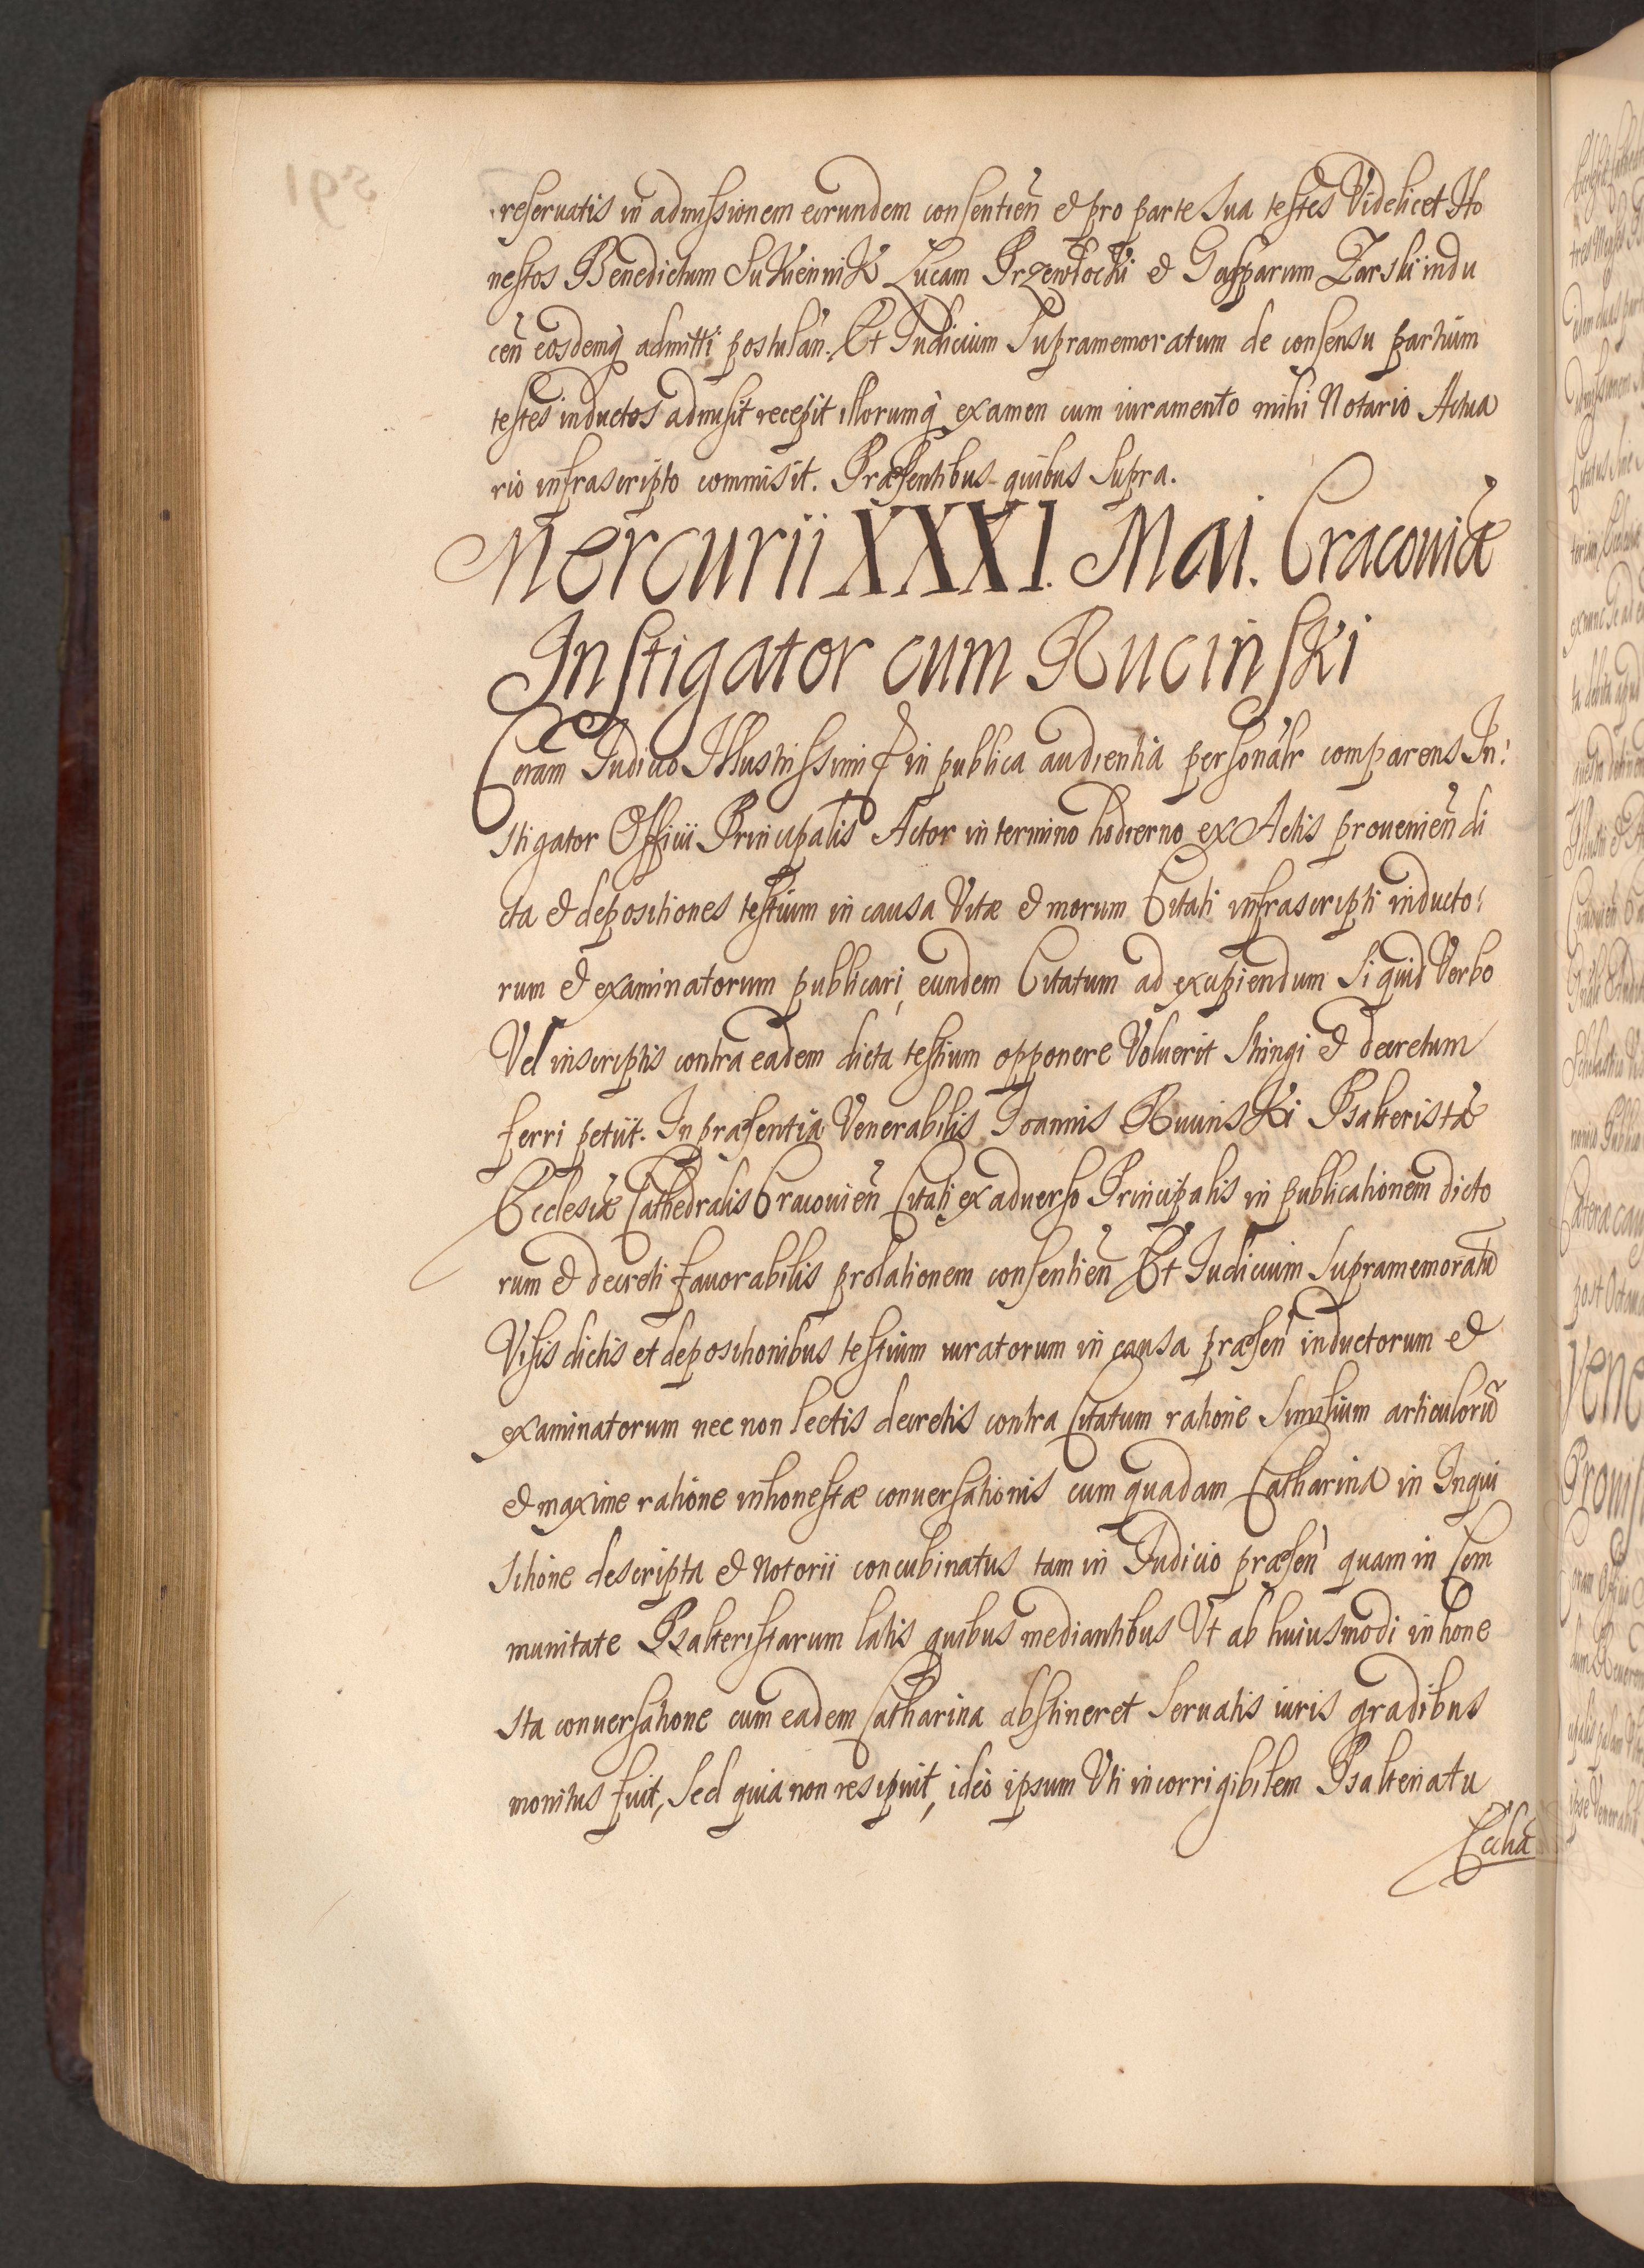 reseruatis in admissionem eorundem consentieñ et pro parte sua testes Videlicet Ho
nestos Benedictum Sukiennik Lucam Przewłocki et Gasparum Zarski indu
ceñ eosdemq̃ admitti postulañ. Et Iudicium Supramemoratum de consensu partium
testes inductos admisit recepit illorumq̃ examen cum iuramento mihi Notario Actua
rio infrascripto commisit. Præsentibus quibus supra.
Mercurii XXXI. Mai. Cracouiæ
Instigator cum Rucinski
Coram Iudicio Illustrissimi in publica audientia personalr comparens In:
stigator Officii Principalis Actor in termino hodierno ex Actis prouenieñ di
cta et depositiones testium in causa Vitæ et morum Citati infrascripti inducto:
rum et examinatorum publicari, eundem Citatum ad excipiendum si quid Verbo
Vel inscriptis contra eadem dicta testium opponere Voluerit stringi et decretum
ferri petiit. In præsentia Venerabilis Ioannis Rucinski Psalteristæ
Ecclesiæ Cathedralis Cracouieñ Citati ex aduerso Principalis in publicationem dicto
rum et decreti fauorabilis prolationem consentieñ Et Iudicium Supramemoratũ
Visis dictis et depositionibus testium iuratorum in causa præseñ inductorum et
examinatorum nec non lectis decretis contra Citatum ratione similium articulorũ
et maxime ratione inhonestæ conuersationis cum quadam Catharina in Inqui
sitione descripta et Notorii concubinatus tam in Iudicio præseñ quam in Com
munitate Psalteristarum latis quibus mediantibus Vt ab huiusmodi inhone
sta conuersatione cum eadem Catharina abstineret seruatis iuris gradibus
monitus fuit, sed quia non resipuit, ideo ipsum Vti incorrigibilem Psalteriatu